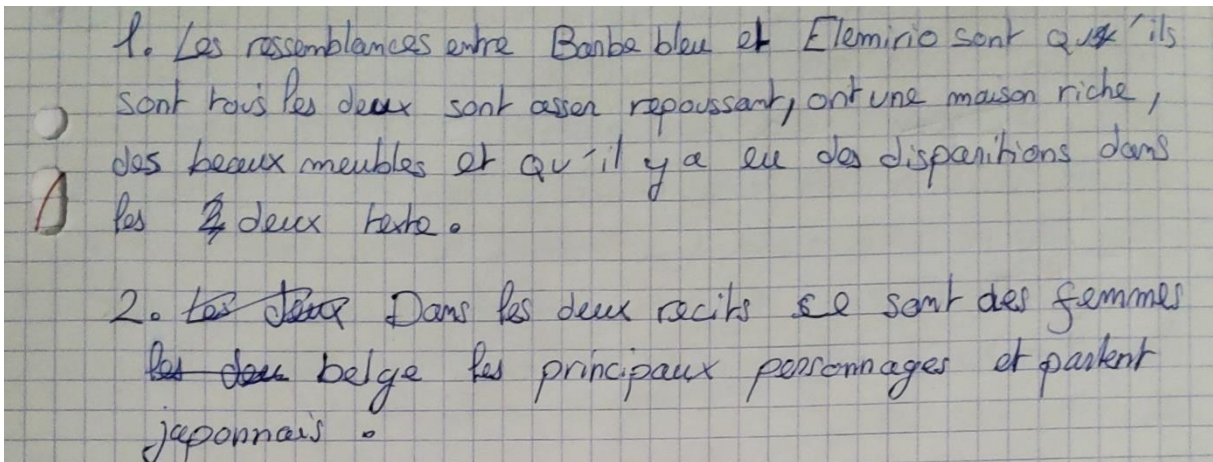 1. Les ressemblances entre Barbe bleu et Elemirio sont qu'ils
sont tous les deux sont assen repoussant, ont une maison riche,
des beaux meubles et qu'il y a eu des disparitions dans
les deux texte.
2. Les deux Dans les deux recits se sont des femmes
les deu belge les principaux personnages et parlent
japonnais.